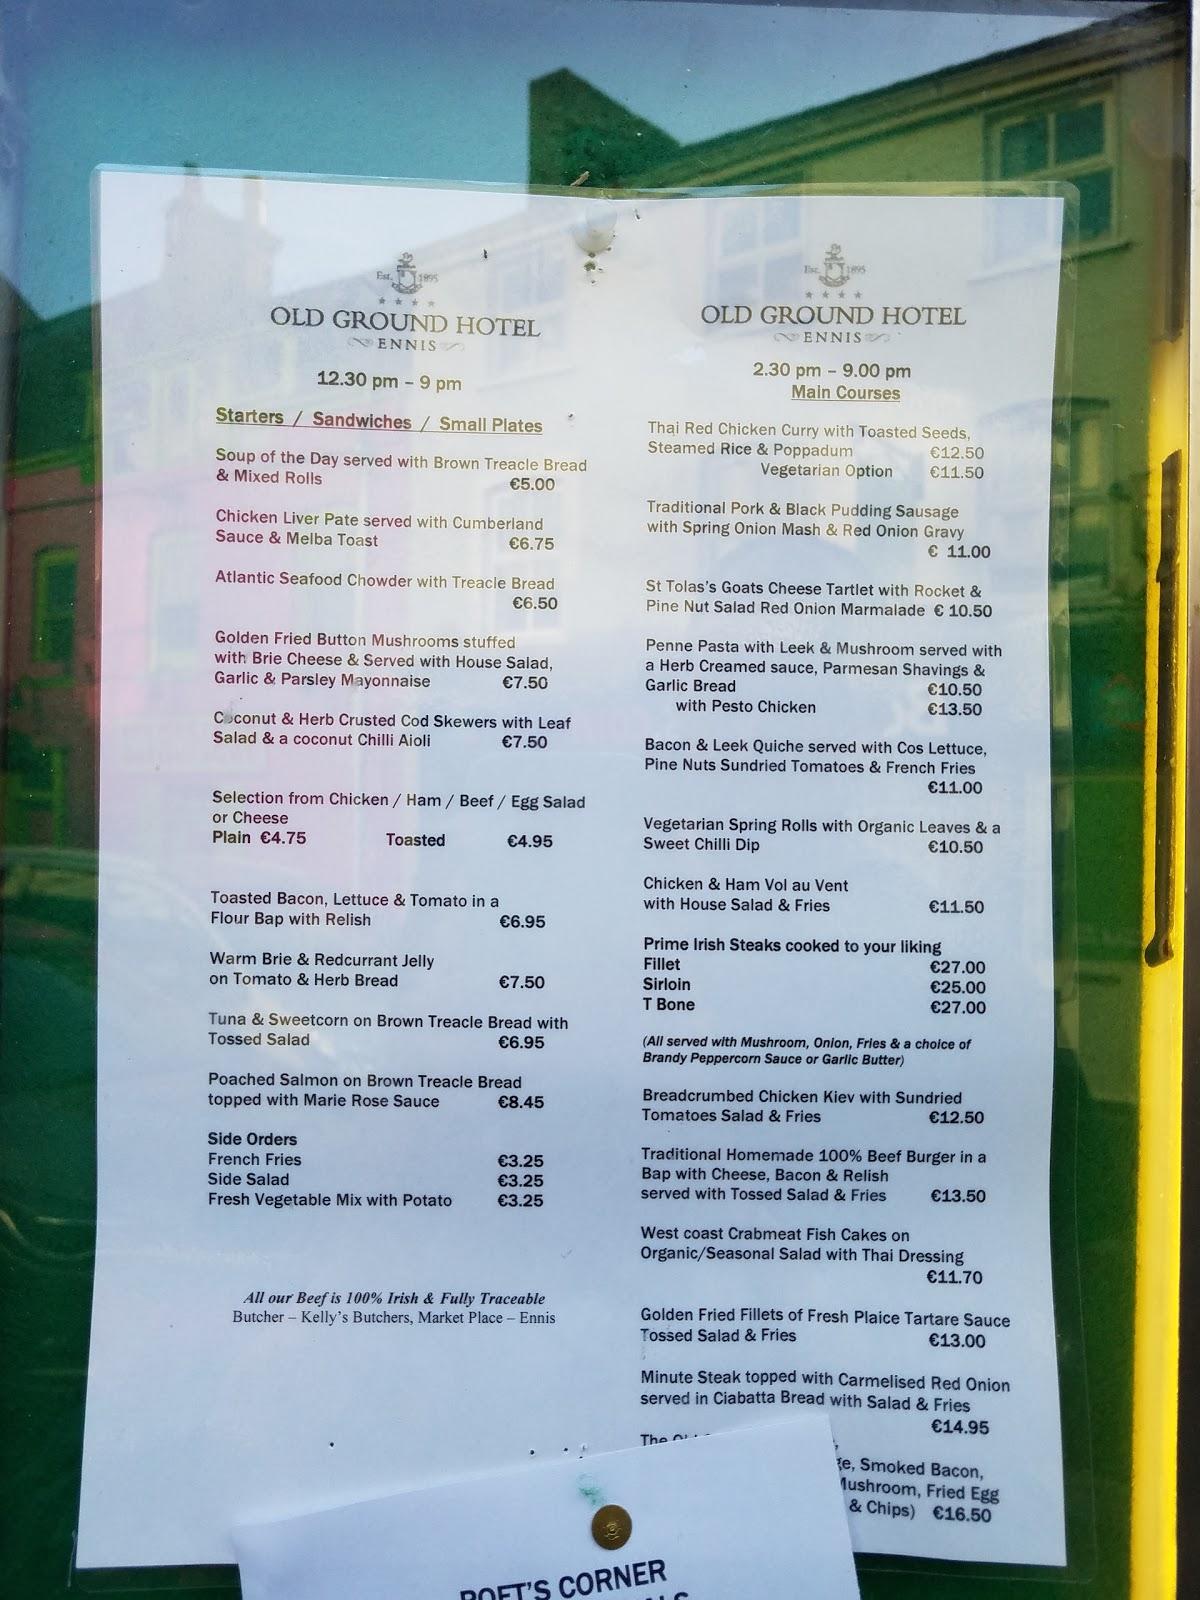 Est. 1895
OLD GROUND HOTEL
ENNIS
12.30 pm – 9 pm
Starters / Sandwiches / Small Plates
Soup of the Day served with Brown Treacle Bread
& Mixed Rolls €5.00
Chicken Liver Pate served with Cumberland
Sauce & Melba Toast €6.75
Atlantic Seafood Chowder with Treacle Bread
€6.50
Golden Fried Button Mushrooms stuffed
with Brie Cheese & Served with House Salad,
Garlic & Parsley Mayonnaise €7.50
Coconut & Herb Crusted Cod Skewers with Leaf
Salad & a coconut Chilli Aioli €7.50
Selection from Chicken / Ham / Beef / Egg Salad
or Cheese
Plain €4.75 Toasted €4.95
Toasted Bacon, Lettuce & Tomato in a
Flour Bap with Relish €6.95
Warm Brie & Redcurrant Jelly
on Tomato & Herb Bread €7.50
Tuna & Sweetcorn on Brown Treacle Bread with
Tossed Salad €6.95
Poached Salmon on Brown Treacle Bread
topped with Marie Rose Sauce €8.45
Side Orders
French Fries €3.25
Side Salad €3.25
Fresh Vegetable Mix with Potato €3.25
All our Beef is 100% Irish & Fully Traceable
Butcher – Kelly's Butchers, Market Place – Ennis
Est. 1895
OLD GROUND HOTEL
ENNIS
2.30 pm – 9.00 pm
Main Courses
Thai Red Chicken Curry with Toasted Seeds,
Steamed Rice & Poppadum €12.50
Vegetarian Option €11.50
Traditional Pork & Black Pudding Sausage
with Spring Onion Mash & Red Onion Gravy
€ 11.00
St Tolas's Goats Cheese Tartlet with Rocket &
Pine Nut Salad Red Onion Marmalade € 10.50
Penne Pasta with Leek & Mushroom served with
a Herb Creamed sauce, Parmesan Shavings &
Garlic Bread €10.50
with Pesto Chicken €13.50
Bacon & Leek Quiche served with Cos Lettuce,
Pine Nuts Sundried Tomatoes & French Fries
€11.00
Vegetarian Spring Rolls with Organic Leaves & a
Sweet Chilli Dip €10.50
Chicken & Ham Vol au Vent
with House Salad & Fries €11.50
Prime Irish Steaks cooked to your liking
Fillet €27.00
Sirloin €25.00
T Bone €27.00
(All served with Mushroom, Onion, Fries & a choice of
Brandy Peppercorn Sauce or Garlic Butter)
Breadcrumbed Chicken Kiev with Sundried
Tomatoes Salad & Fries €12.50
Traditional Homemade 100% Beef Burger in a
Bap with Cheese, Bacon & Relish
served with Tossed Salad & Fries €13.50
West coast Crabmeat Fish Cakes on
Organic/Seasonal Salad with Thai Dressing
€11.70
Golden Fried Fillets of Fresh Plaice Tartare Sauce
Tossed Salad & Fries €13.00
Minute Steak topped with Carmelised Red Onion
served in Ciabatta Bread with Salad & Fries
€14.95
The
Smoked Bacon,
Mushroom, Fried Egg
& Chips) €16.50
POET'S CORNER